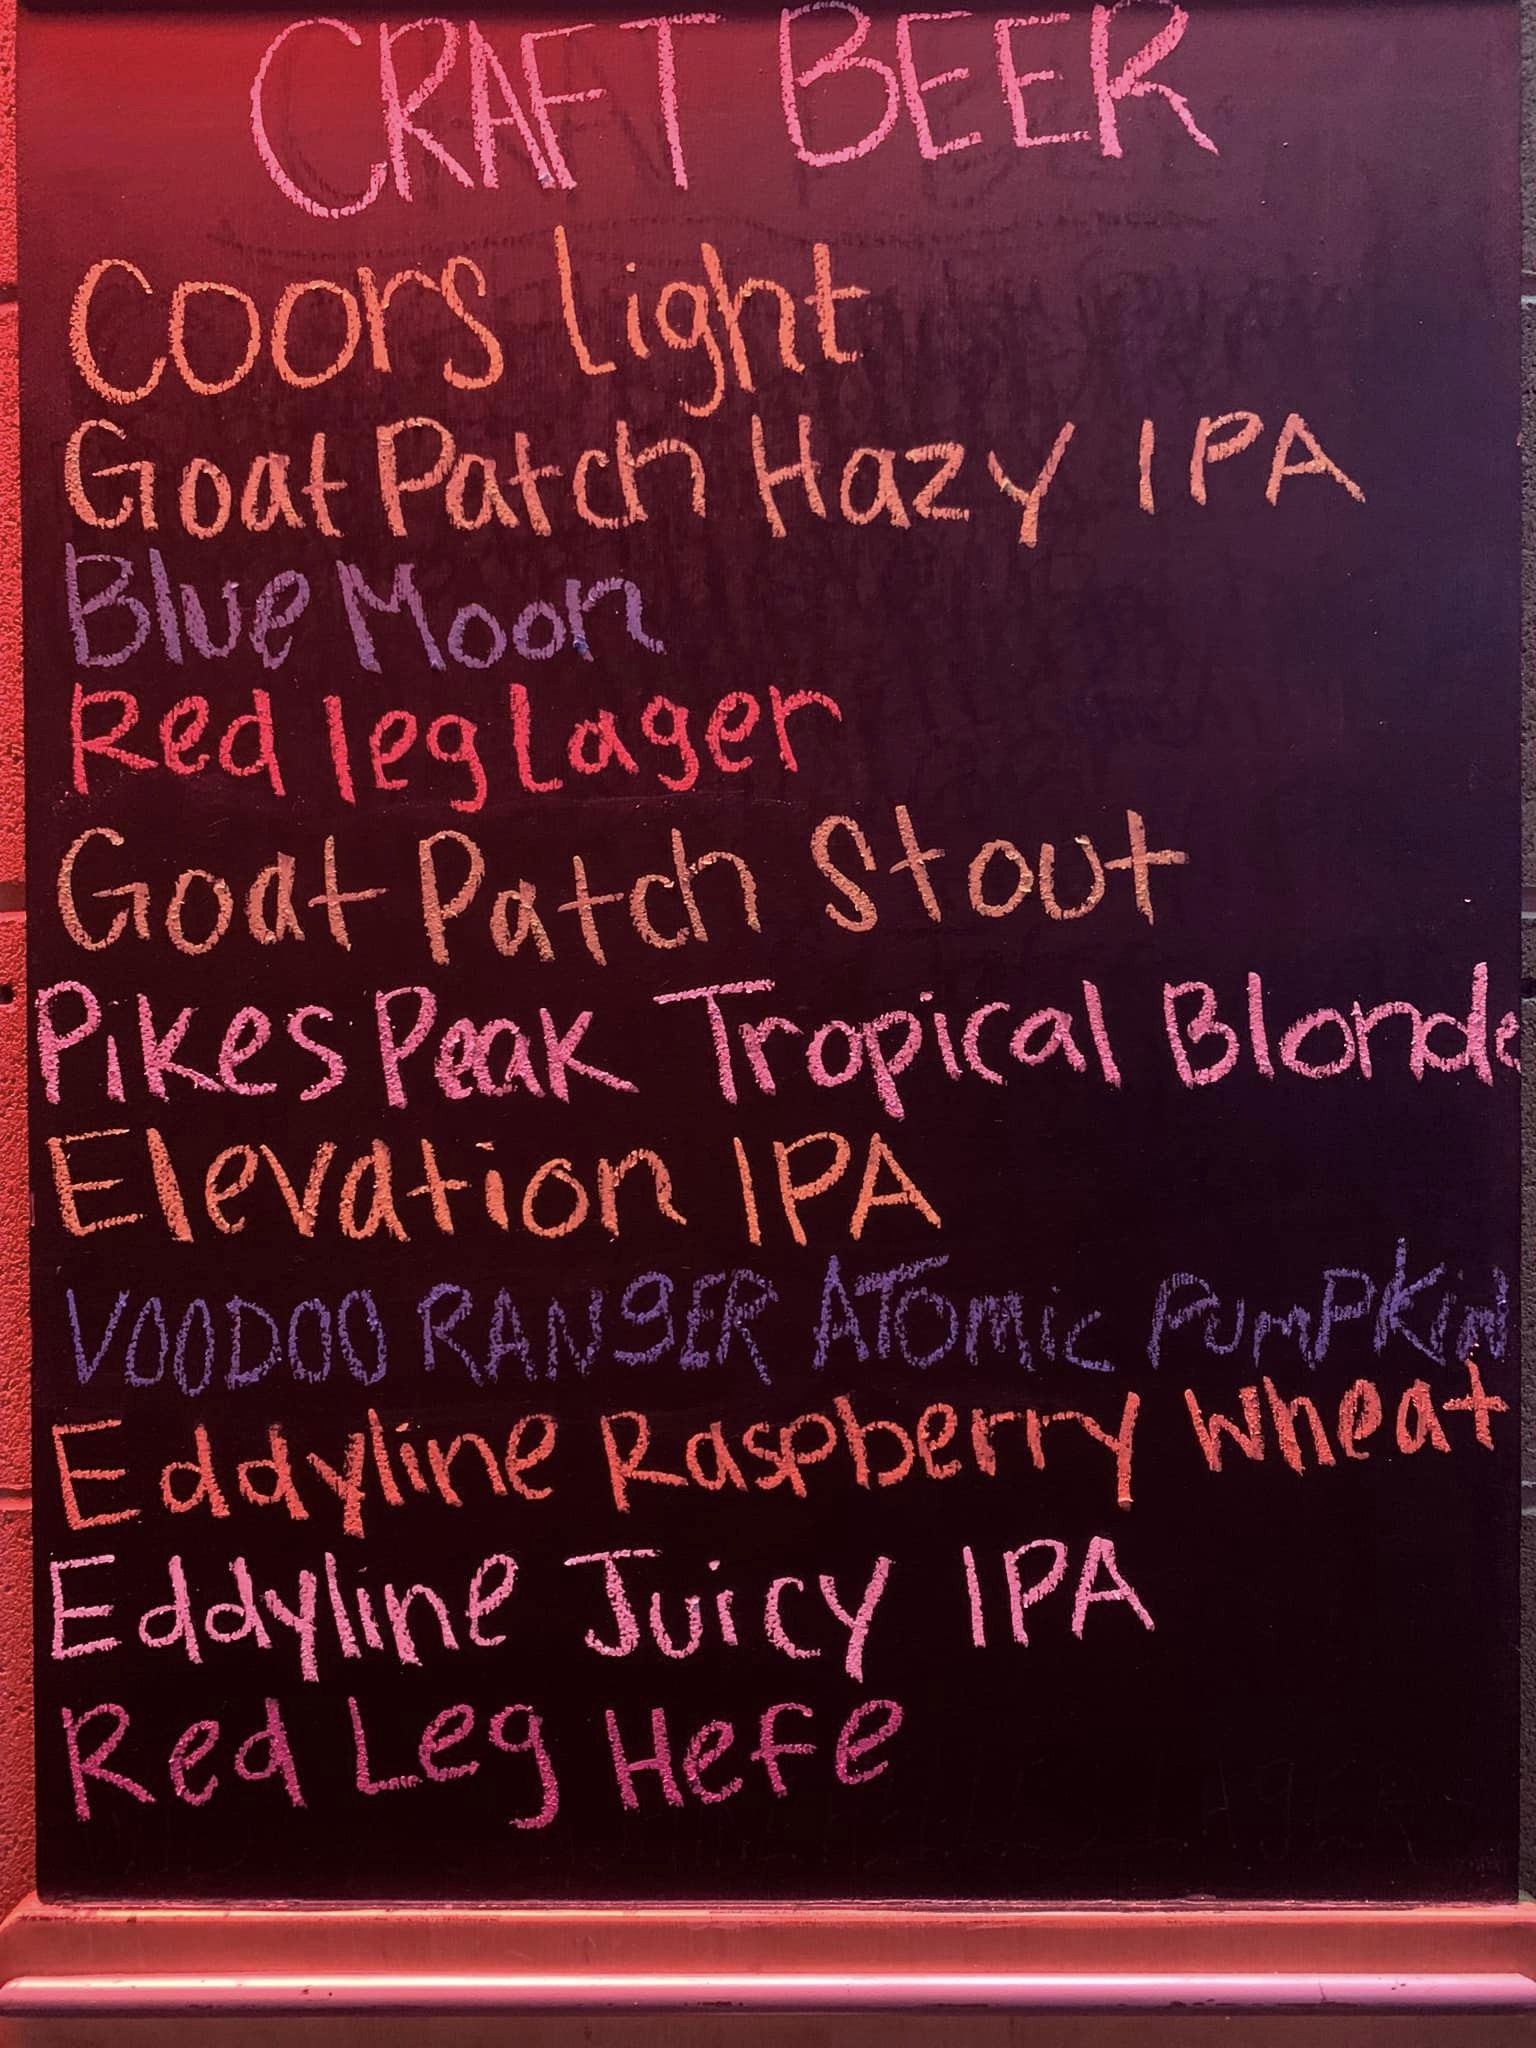 CRAFT BEER
Coors Light
Goat Patch Hazy IPA
Blue Moon
Red leg Lager
Goat Patch Stout
Pikes Peak Tropical Blonde
Elevation IPA
VOODOO RANGER ATOmic PumPKin
Eddyline Raspberry Wheat
Eddyline Juicy IPA
Red Leg Hefe